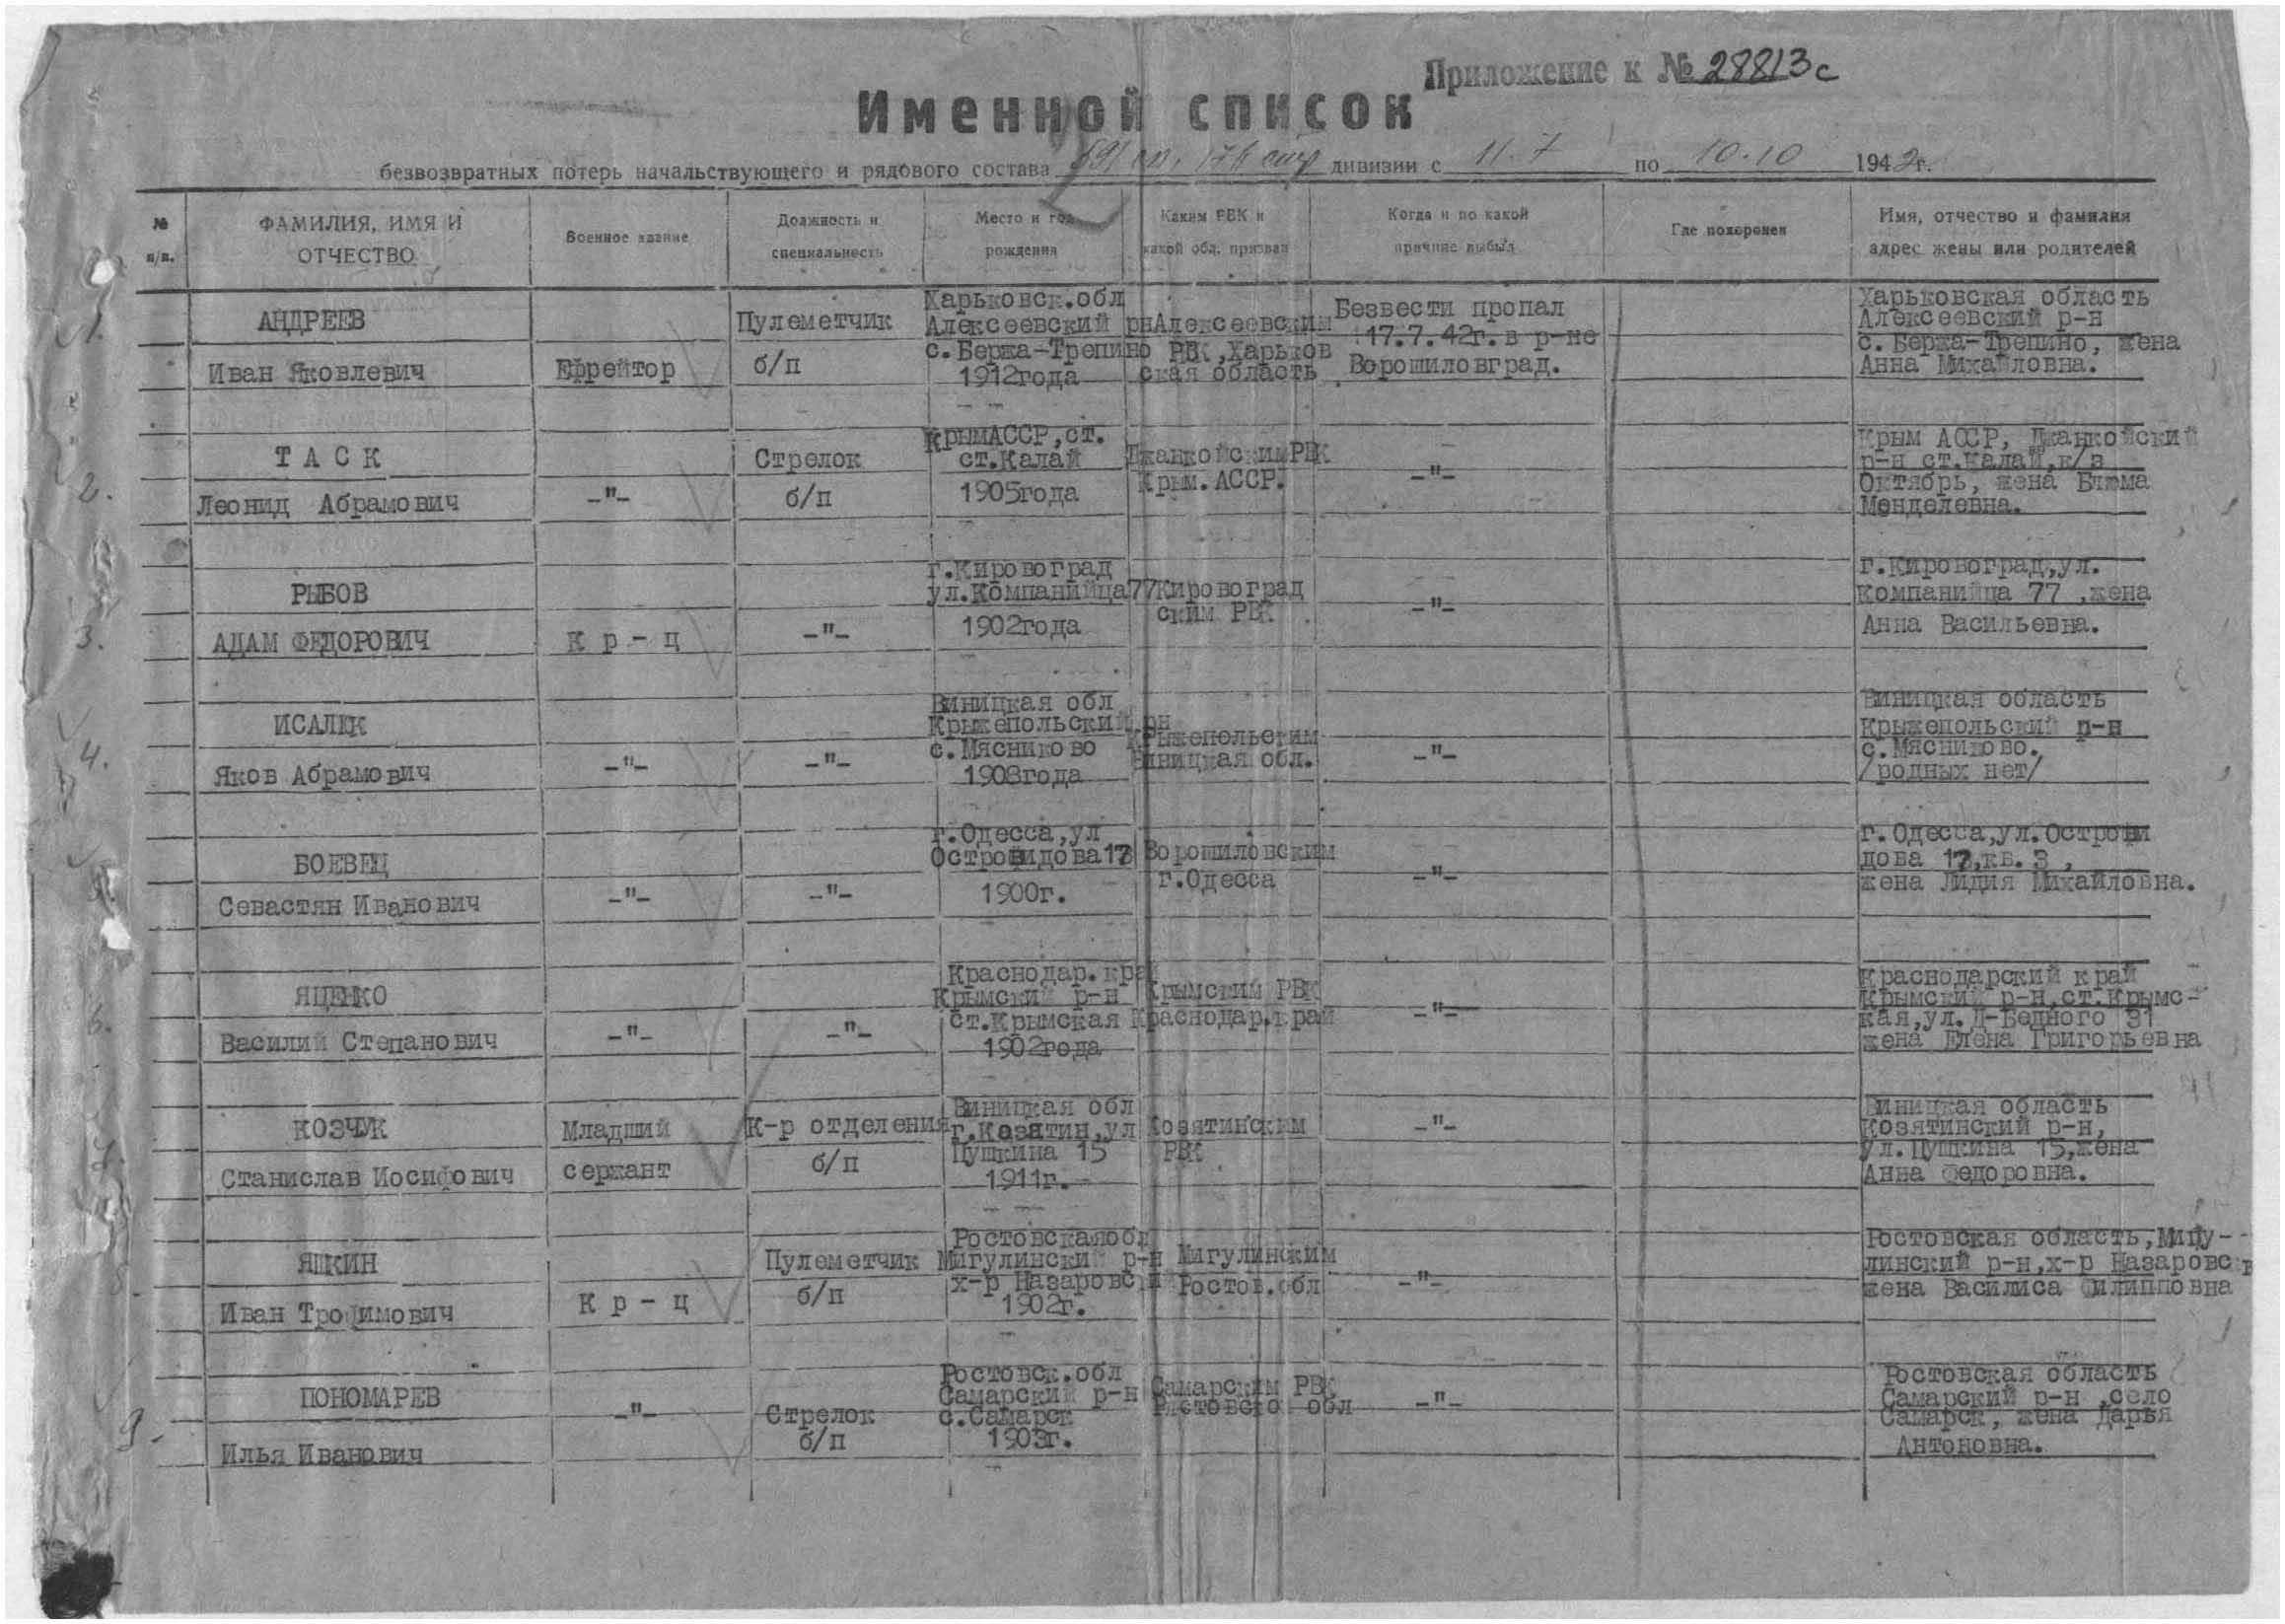 Приложение к № 28813с
Именной список
безвозвратных потерь начальствующего и рядового состава 591 сп. 176 стр дивизии с 11.7 по 10.10 1942г.
№ п/п.
ФАМИЛИЯ, ИМЯ И ОТЧЕСТВО
Военное звание
Должность и специальность
Место и год рождения
Каким РВК и какой обл. призван
Когда и по какой причине выбыл
Где похоронен
Имя, отчество и фамилия адрес жены или родителей
1.
АНДРЕЕВ
Иван Яковлевич
Ефрейтор
Пулеметчик
б/п
Харьковск.обл
Алексеевский рн
с.Бержа-Трепино
1912года
Алексеевским
РВК,Харьков
ская область
Безвести пропал
17.7.42г.в р-не
Ворошиловград.
Харьковская область
Алексеевский р-н
с.Бержа-Трепино, жена
Анна Михайловна.
2.
ТАСК
Леонид Абрамович
-"-
Стрелок
б/п
КрымАССР,ст.
ст.Калай
1905года
ДжанкойскимРВК
Крым.АССР.
-"-
Крым АССР, Джанкойский
р-н ст.Калай,к/з
Октябрь, жена Блюма
Менделевна.
3.
РЫБОВ
АДАМ ФЕДОРОВИЧ
Кр-ц
-"-
г.Кировоград
ул.Компанийца77
1902года
Кировоград
ским РВК
-"-
г.Кировоград,ул.
Компанийца 77 ,жена
Анна Васильевна.
4.
ИСАЛЕК
Яков Абрамович
-"-
-"-
Виницкая обл
Крыжепольский рн
с.Мясниково
1908года
Крыжепольским
Виницкая обл.
-"-
Виницкая область
Крыжепольский р-н
с.Мясниково.
/родных нет/
5.
БОЕВЕЦ
Севастян Иванович
-"-
-"-
г.Одесса,ул
Островидова
1900г.
Ворошиловским
г.Одесса
-"-
г.Одесса,ул.Острови
дова 17,кв.3,
жена Лидия Михайловна.
6.
ЯЦЕНКО
Василий Степанович
-"-
-"-
Краснодар.край
Крымский р-н
ст.Крымская
1902года
Крымским РВК
Краснодар.край
-"-
Краснодарский край
Крымский р-н,ст.Крымс-
кая,ул.Д-Бедного 31
жена Елена Григорьевна
7.
КОЗЧУК
Станислав Иосифович
Младший
сержант
К-р отделения
б/п
Виницкая обл
г.Козятин,ул
Пушкина 15
1911г.
Козятинским
РВК
-"-
Виницкая область
Козятинский р-н,
ул.Пушкина 15,жена
Анна Федоровна.
8.
ЯШКИН
Иван Трофимович
Кр-ц
Пулеметчик
б/п
Ростовскаяобл
Мигулинский р-н
х-р Назаровский
1902г.
Мигулинским
Ростов.обл
-"-
Ростовская область,Мигу-
линский р-н,х-р Назаровск
жена Василиса Филипповна
9.
ПОНОМАРЕВ
Илья Иванович
-"-
Стрелок
б/п
Ростовск.обл
Самарский р-н
с.Самарск
1903г.
Самарским РВК
Ростовско обл
-"-
Ростовская область
Самарский р-н ,село
Самарск, жена Дарья
Антоновна.